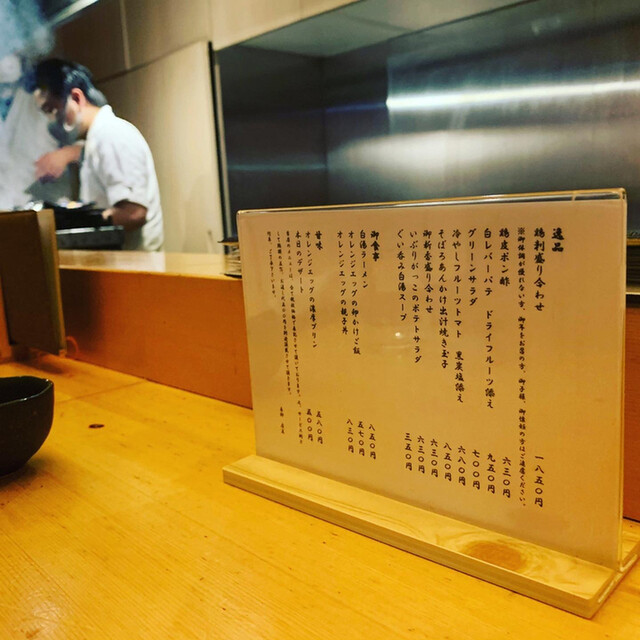 逸品
鶏刺盛り合わせ 一八五〇円
※御体調が優れない方、御年をお召の方、御子様、御懐妊の方はご遠慮ください。
鶏皮ポン酢 六三〇円
白レバーパテ ドライフルーツ添え 九五〇円
グリーンサラダ 七〇〇円
冷やしフルーツトマト 黒炭塩添え 六八〇円
そぼろあんかけ出汁焼き玉子 八五〇円
御新香盛り合わせ 六三〇円
いぶりがっこのポテトサラダ 六三〇円
ぐい呑み白湯スープ 三五〇円
御食事
白湯ラーメン 八五〇円
オレンジエッグの卵かけご飯 五七〇円
オレンジエッグの親子丼 八三〇円
甘味
オレンジエッグの濃厚プリン 五八〇円
本日のデザート 五〇〇円